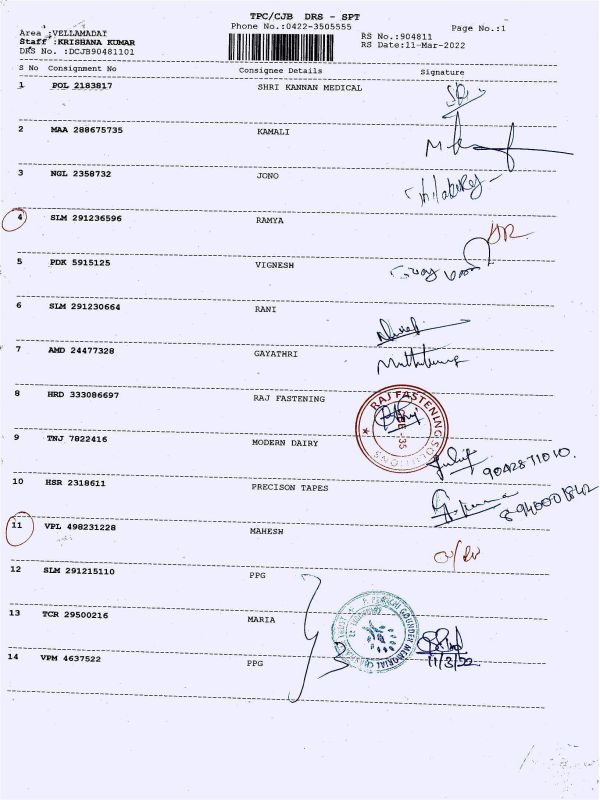 TPC/CJB DRS - SPT
Phone No.:0422-3505555
Page No.:1
Area :VELLAMADAI
Staff :KRISHANA KUMAR
RS No.:904811
DRS No. :DCJB90481101
RS Date:11-Mar-2022
S No Consignment No Consignee Details Signature
1 POL 2183817 SHRI KANNAN MEDICAL
2 MAA 288675735 KAMALI
3 NGL 2358732 JONO
4 SLM 291236596 RAMYA
5 PDK 5915125 VIGNESH
6 SLM 291230664 RANI
7 AMD 24477328 GAYATHRI
8 HRD 333086697 RAJ FASTENING
RAJ FASTENING SOLUTIONS
CBE-35
9 TNJ 7822416 MODERN DAIRY
9042871010.
10 HSR 2318611 PRECISON TAPES
11 VPL 498231228 MAHESH
12 SLM 291215110 PPG
13 TCR 29500216 MARIA
14 VPM 4637522 PPG
11/3/22